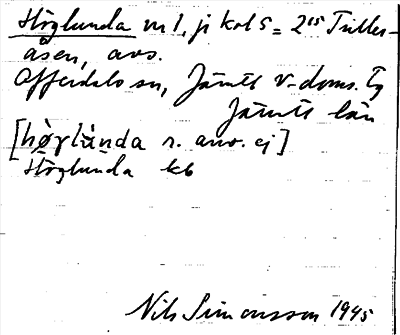 Höglunda nr 1, jr kol 5 = 2²⁵ Triller-
åsen, avs.
Offerdals sn, Jämtl V-doms. Tg
Jämtl län
[hø̀glúnda r. anv. ej]
Höglunda kb
Nils Simonsson 1945